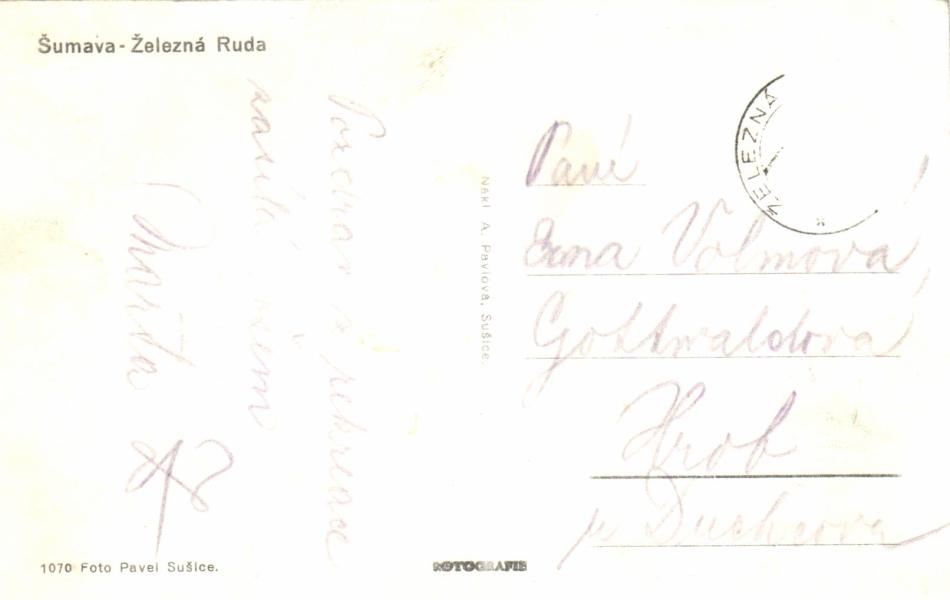 Šumava - Železná Ruda
Pozdrav z rekreace
zasílá všem
Marta
Paní
Volmová
Gottwaldova
Hrob
u Duchcova
ŽELEZNÁ
Nákl. A. Pavlová, Sušice.
1070 Foto Pavel Sušice.
FOTOGRAFIE